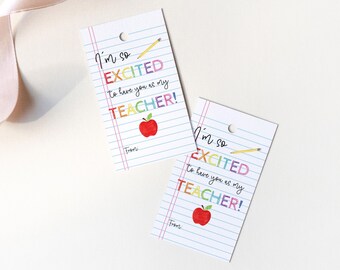 I'm so
EXCITED
to have you as my
TEACHER!
From:
I'm so
EXCITED
to have you as my
TEACHER!
From: